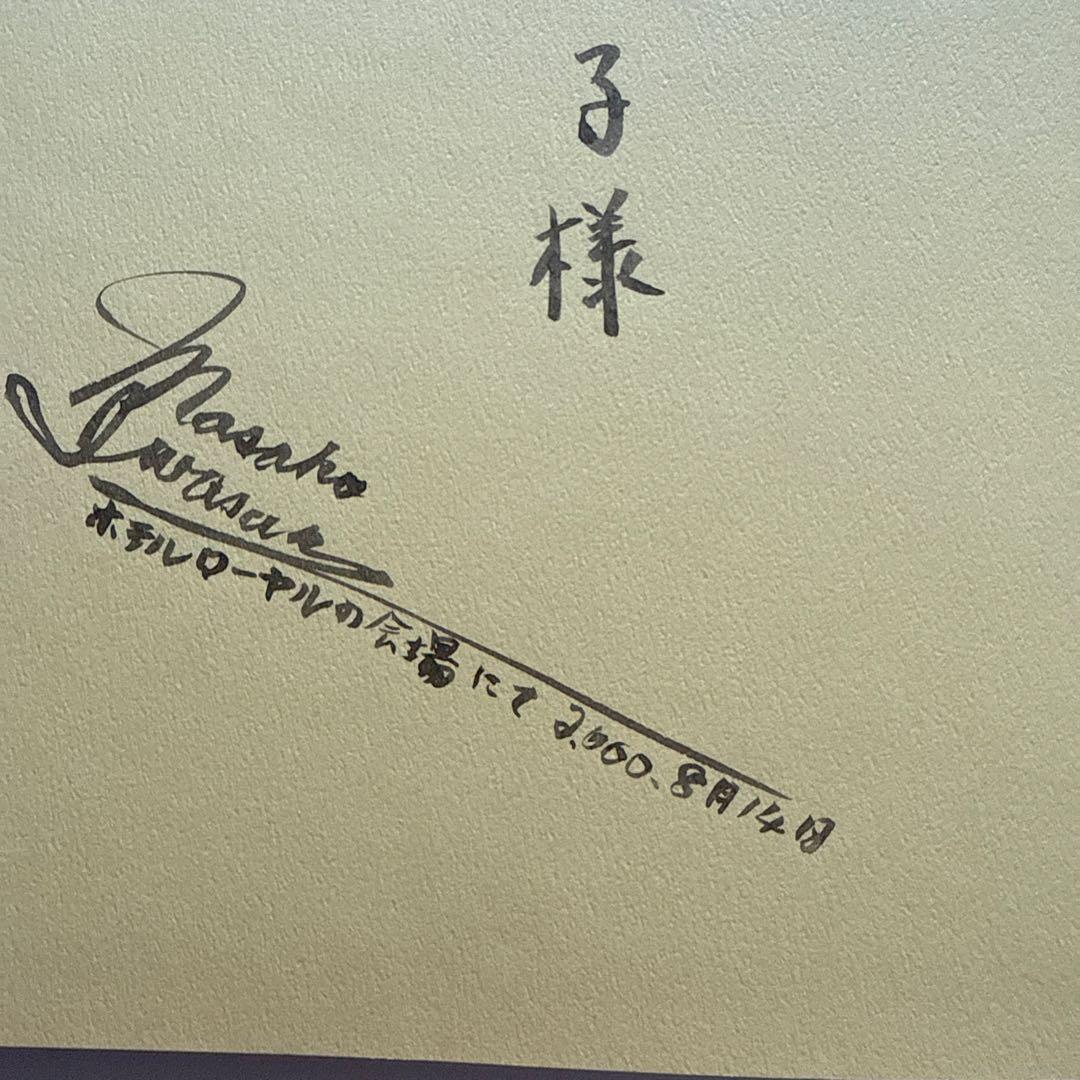 子様
Masako
Iwasaki
ホテルローヤルの会場にて 2,000.8月14日